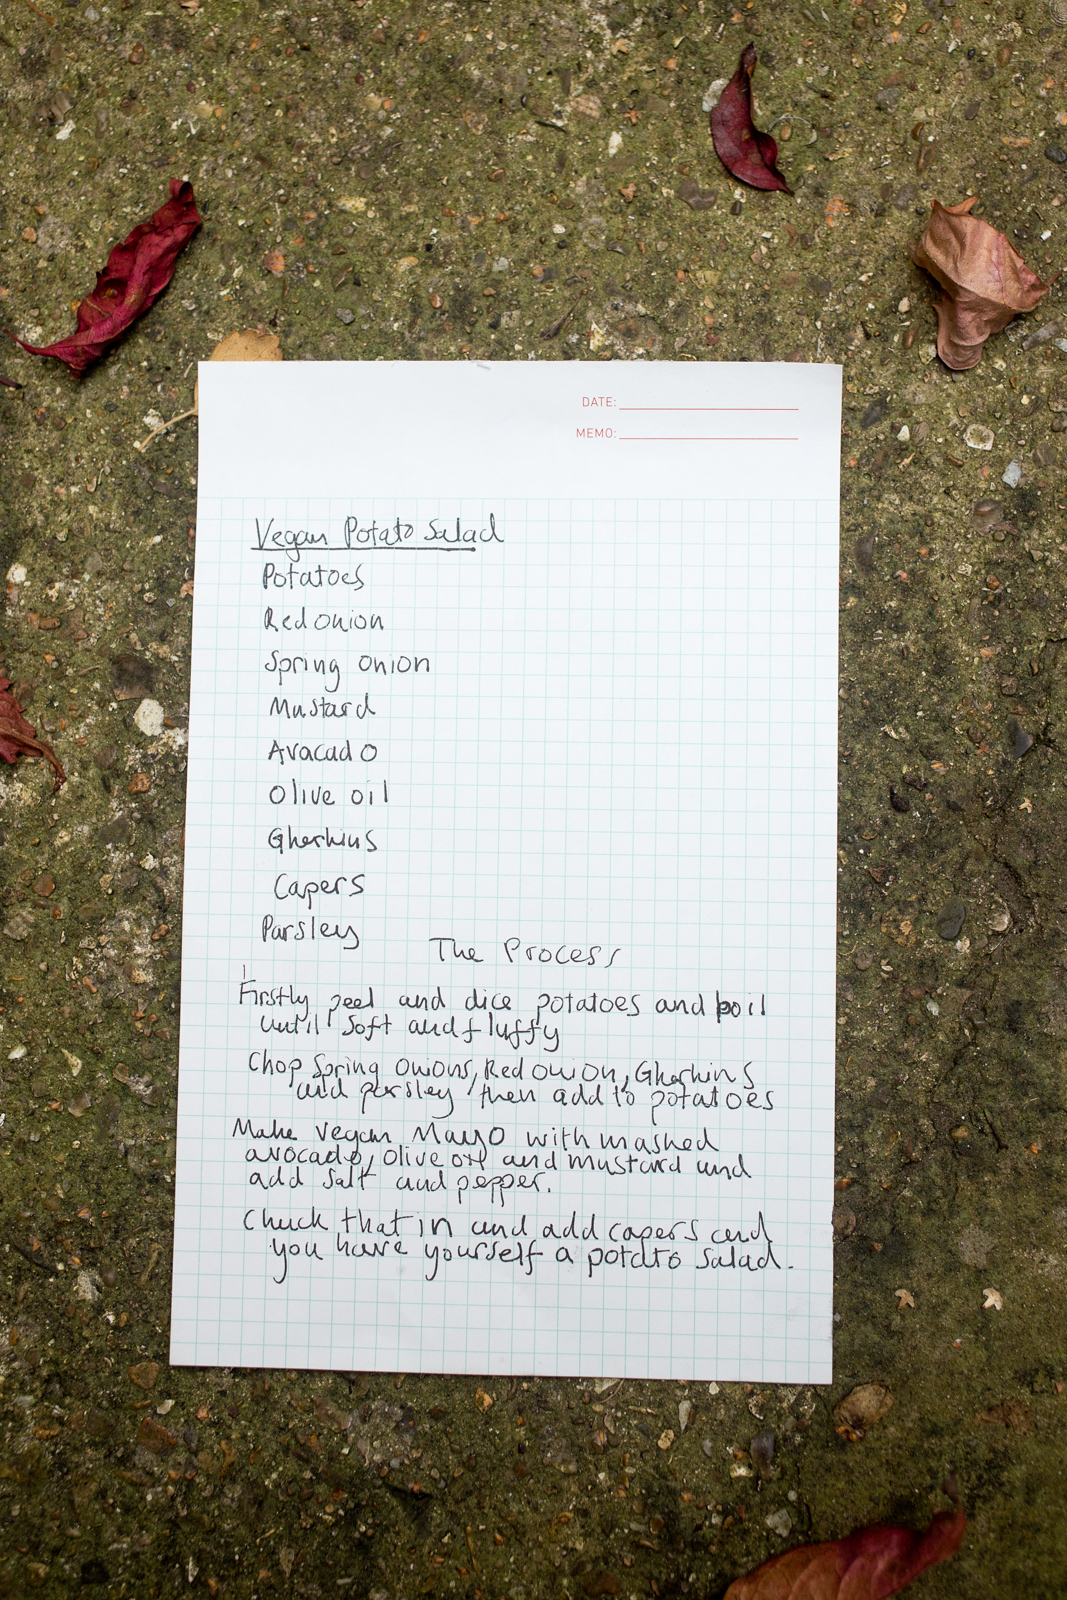 DATE:
MEMO:
Vegan Potato Salad
Potatoes
Red onion
Spring onion
Mustard
Avacado
Olive oil
Gherkins
Capers
Parsley
The Process
Firstly peel and dice potatoes and boil
until soft and fluffy
Chop Spring onions, Red onion, Gherkins
and parsley, then add to potatoes
Make vegan Mayo with mashed
avocado, olive oil and mustard and
add salt and pepper.
Chuck that in and add capers and
you have yourself a potato salad.